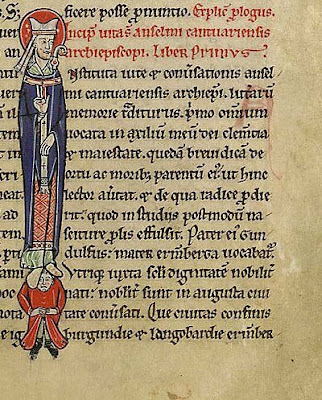 ficere posse pronuntio. Explic̄ plogus.
Incip̄ vita s̄ anselmi cantuariensis
archiepiscopi. Liber Primus.
nstituta uite & cōuersationis ansel
mi cantuariensis archiepi. litterarū
memorie traditurus. primo omnium
uocata in auxiliū meū dei clemētia
& maiestate. quedam breui dicā de
ortu ac morib; parentum ei⁹. ut hinc
lector aduertat. & de qua radice prodie
rit. quod in studiis postmodū na
sciture prolis effulsit. Pater ei⁹ Gun
dulfus: mater ermberga uocabat᷑.
Vtriq; iuxta sc̄li dignitatē nobilit᷑
nati: nobilit᷑ sunt in augusta ciui
tate cōuersati. Que ciuitas confinis
burgundie & langobardie ermber